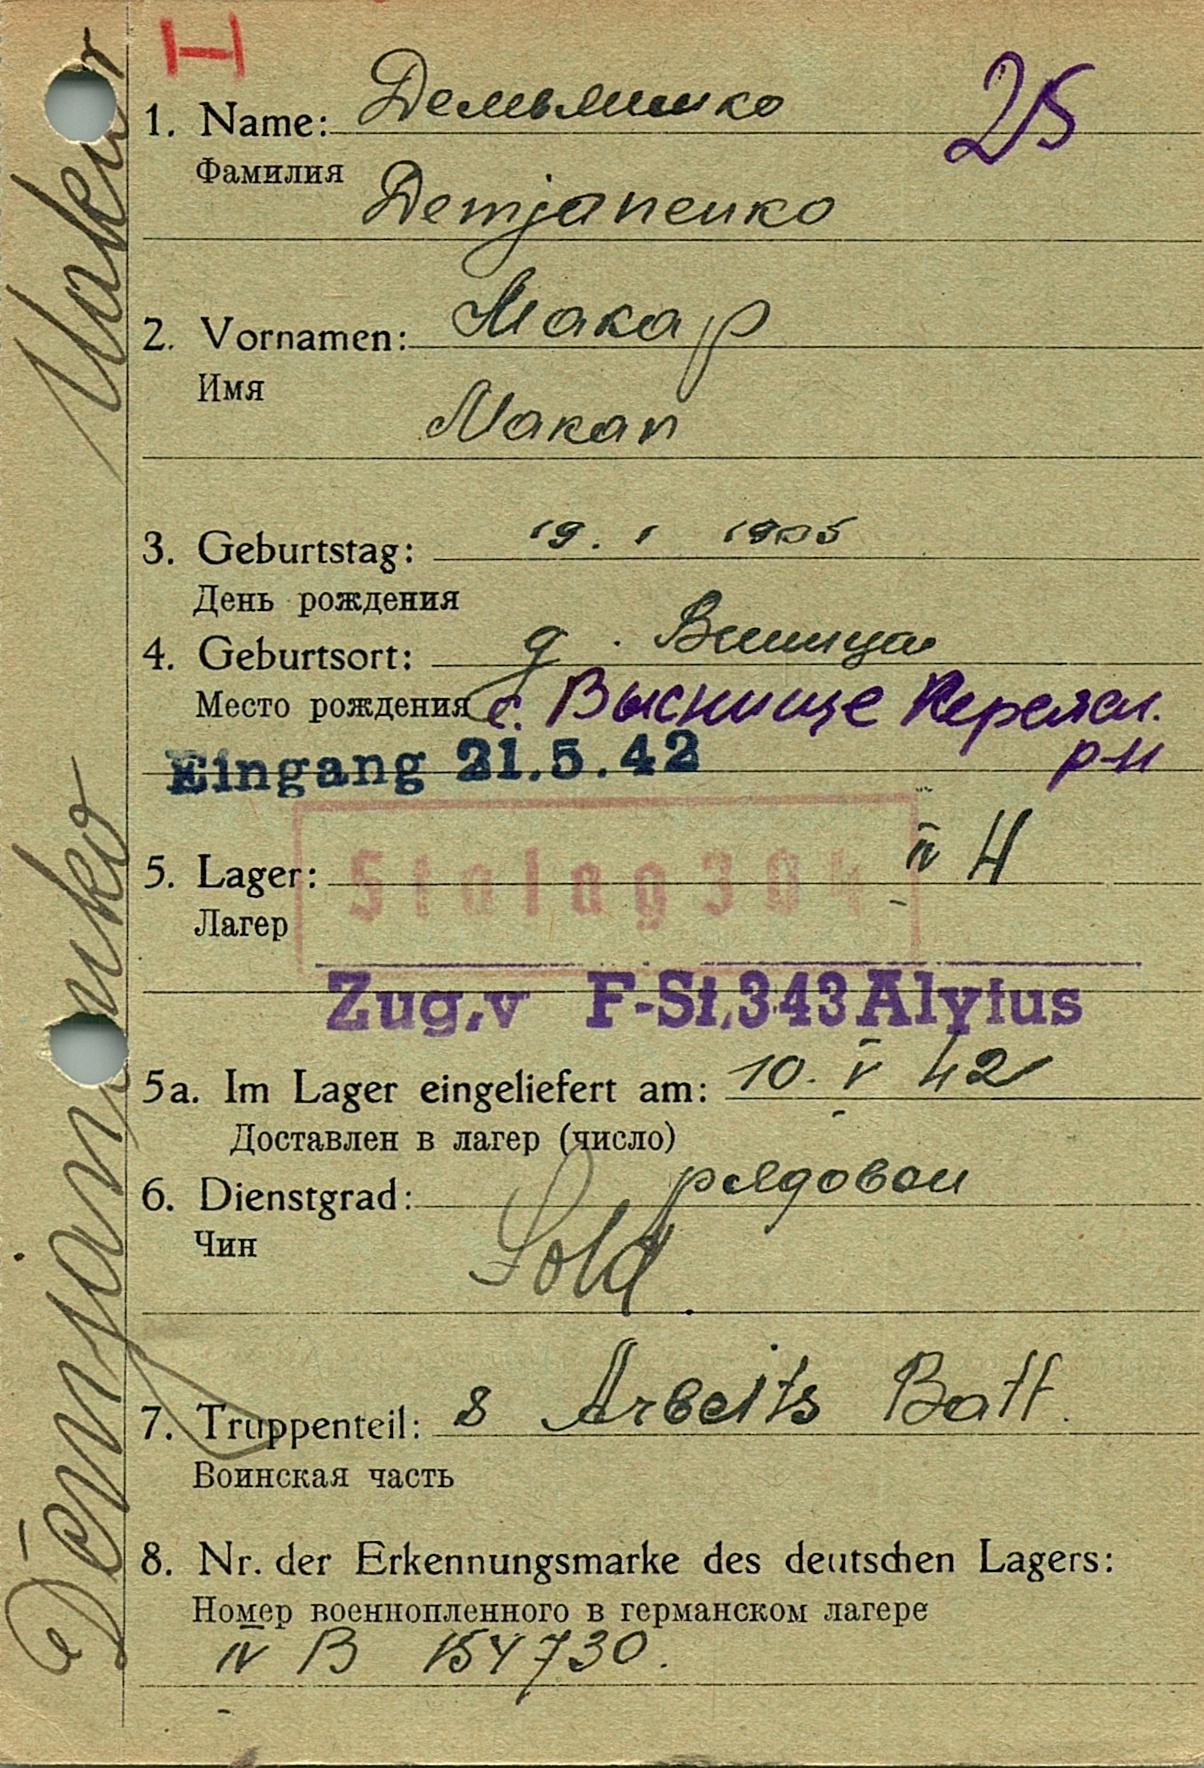 I
25
1. Name: Демьянико
Фамилия
Demjanенко
2. Vornamen: Макар
Имя
Макап
3. Geburtstag: 19. 1 1905
День рождения
4. Geburtsort: д.
Место рождения с. Выснище Переясл.
р-н
Eingang 21.5.42
5. Lager: IV H
Лагер
Stalag 304
Zug. v F-St. 343 Alytus
5a. Im Lager eingeliefert am: 10. V 42
Доставлен в лагер (число)
6. Dienstgrad: рядовой
Чин
Sold.
7. Truppenteil: 8 Arbeits Batt.
Воинская часть
8. Nr. der Erkennungsmarke des deutschen Lagers:
Номер военнопленного в германском лагере
IV B 154730.
Demjanenko Makar